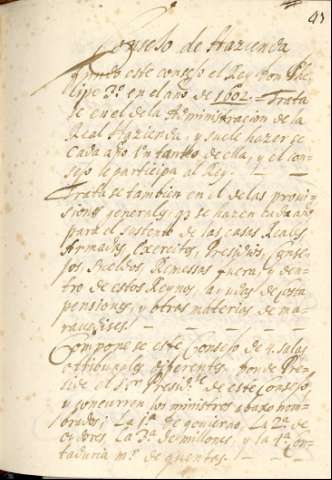 43
Consejo de Hazienda
fundo este consejo el Rey don Phe
lipe 3º en el año de 1602 = Trata
se en el de la Administraçion de la
Real Hazienda, y suele hazerse
cada año tanteo de ella, y el con
sejo le participa al Rey. —
Tratase tambien en el de las provi
siones generales q̃ se hazen cada año
para el sustento de las casas Reales
Armadas, Exercitos, Presidios, Conse
jos, Sueldos Remesas fuera, y den
tro de estos Reynos, ayudas de costa
pensiones, y otras materias de ma
ravedises! — — — — —
Componese este Consejo de 4. salas
o tribunales diferentes, donde Pre
side el Sr. Presidte. de este Consejo,
y concurren los ministros abaxo nom
brados; La 1ª de govierno, La 2ª de
oydores, La 3ª de millones, y la 4ª Con
taduria mr. de quentas. — —